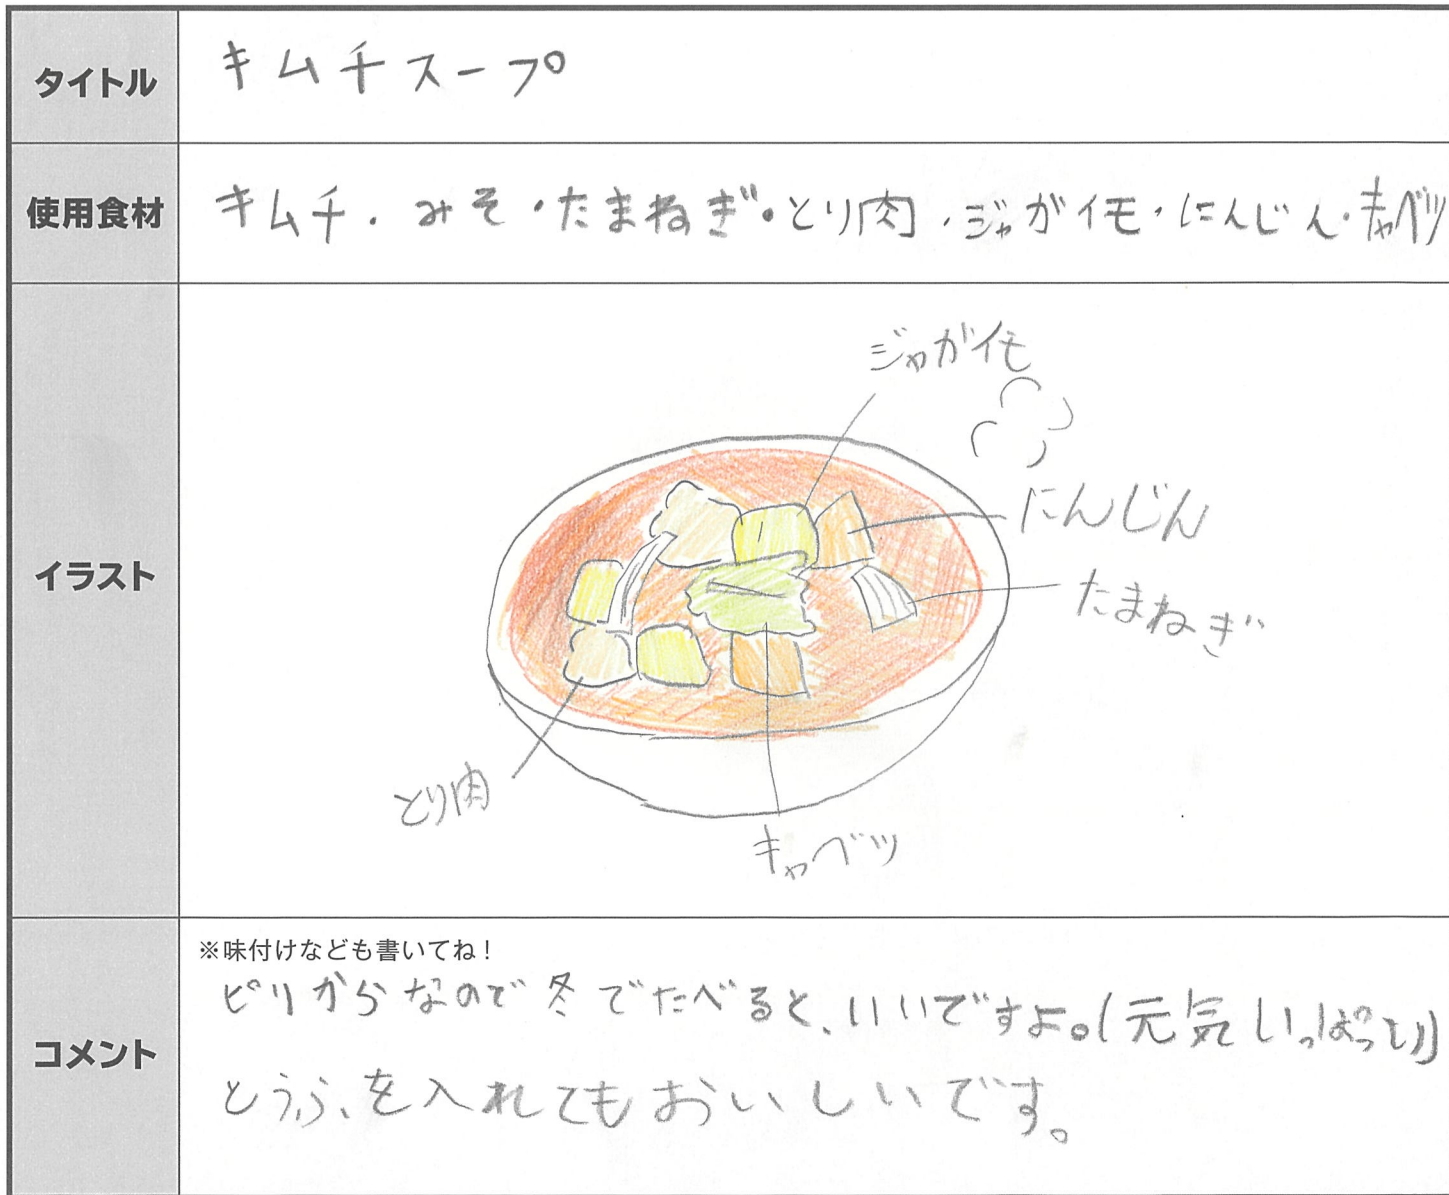 タイトル
キムチスープ
使用食材
キムチ・みそ・たまねぎ・とり肉・ジャがイモ・にんじん・キャベツ
イラスト
ジャがイモ
にんじん
たまねぎ
とり肉
キャベツ
コメント
※味付けなども書いてね！
ピリからなので冬でたべると、いいですよ。(元気いっぱっい)
とうふを入れてもおいしいです。